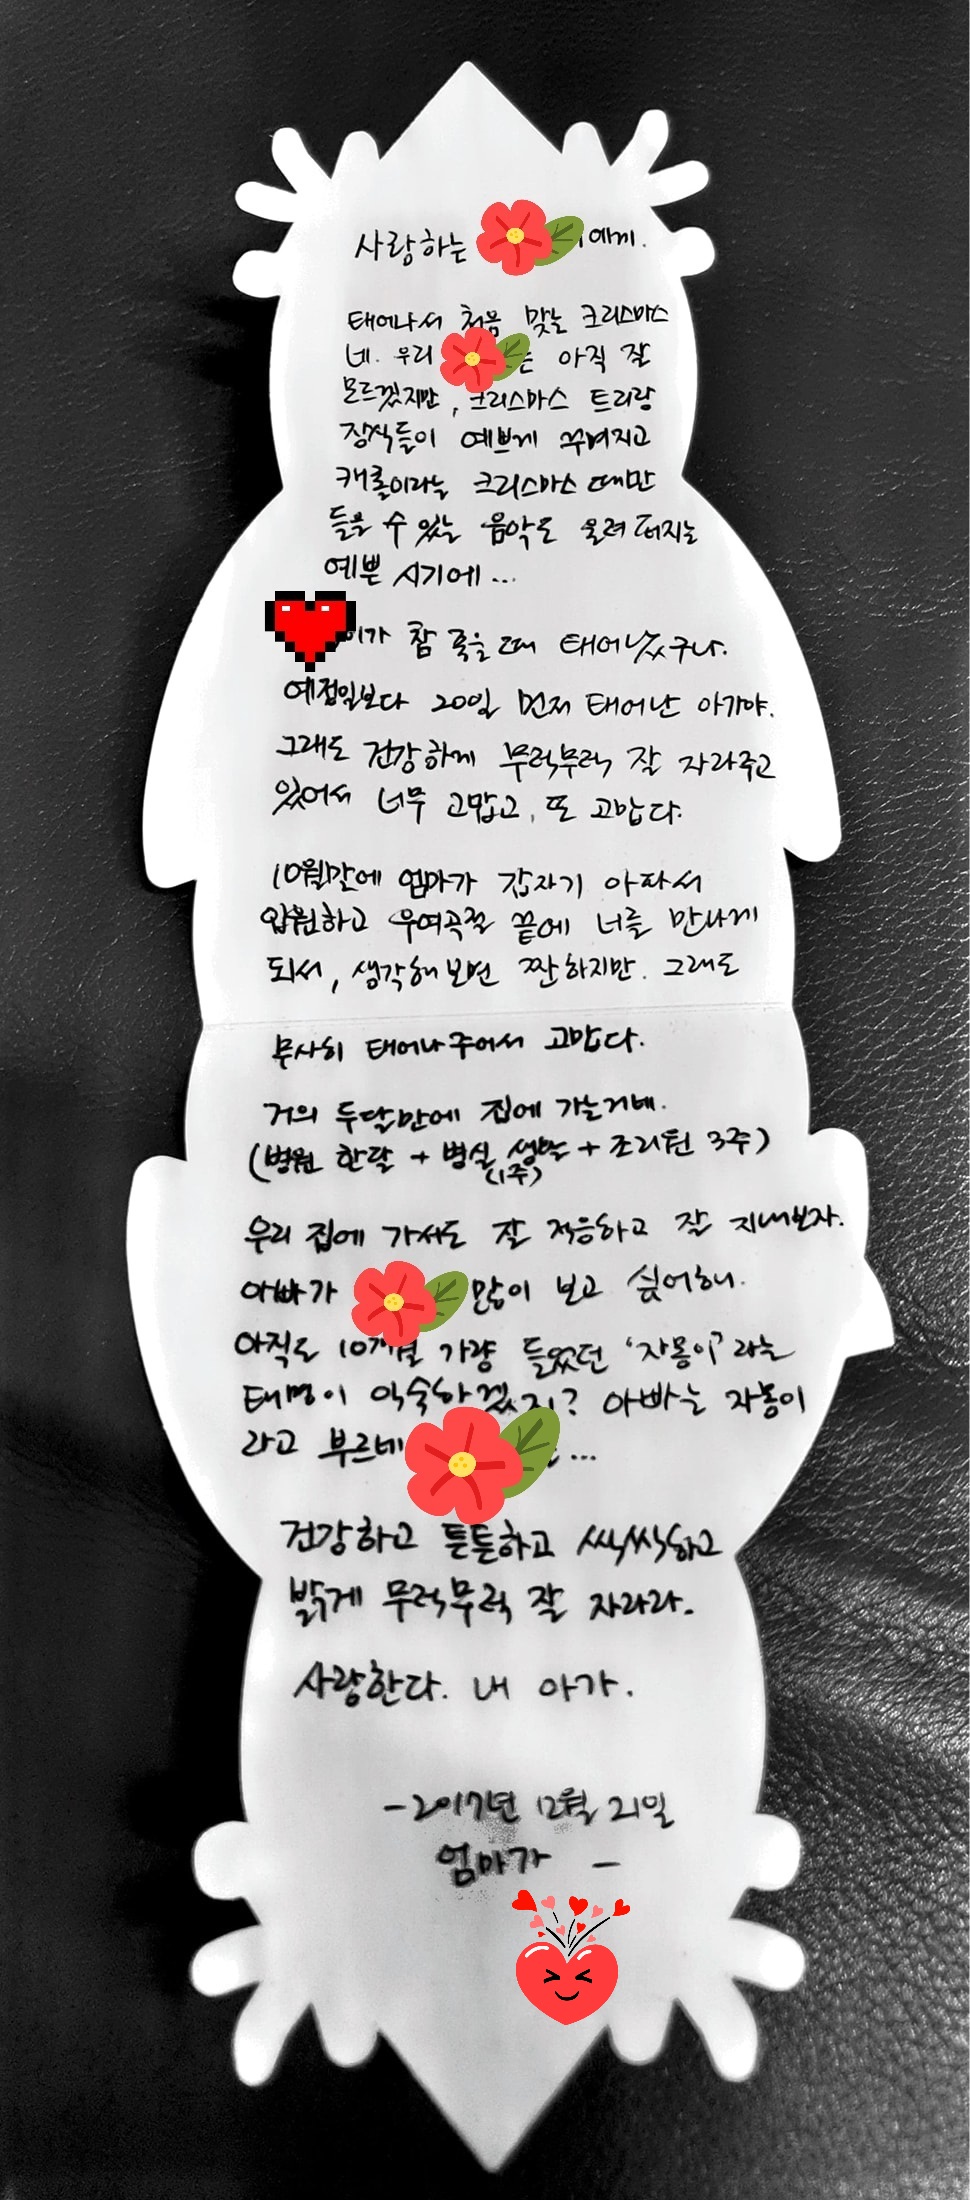 사랑하는 이에게.
태어나서 처음 맞는 크리스마스
네. 우리 는 아직 잘
모르겠지만, 크리스마스 트리랑
장식들이 예쁘게 꾸며지고
캐롤이라는 크리스마스 때만
들을 수 있는 음악도 울려 퍼지는
예쁜 시기에...
이가 참 좋을 때 태어났구나.
예정일보다 20일 먼저 태어난 아가야.
그래도 건강하게 무럭무럭 잘 자라주고
있어서 너무 고맙고, 또 고맙다.
10월말에 엄마가 갑자기 아파서
입원하고 우여곡절 끝에 너를 만나게
되서, 생각해보면 짠하지만. 그래도
무사히 태어나주어서 고맙다.
거의 두달만에 집에 가는거네.
(병원 한달 + 병실 생활 + 조리원 3주)
(1주)
우리 집에 가서도 잘 적응하고 잘 지내보자.
아빠가 많이 보고 싶어해.
아직도 10개월 가량 들었던 '자몽이'라는
태명이 익숙하겠지? 아빠는 자몽이
라고 부르네 ...
건강하고 튼튼하고 씩씩하고
밝게 무럭무럭 잘 자라라.
사랑한다. 내 아가.
-2017년 12월 21일
엄마가 -